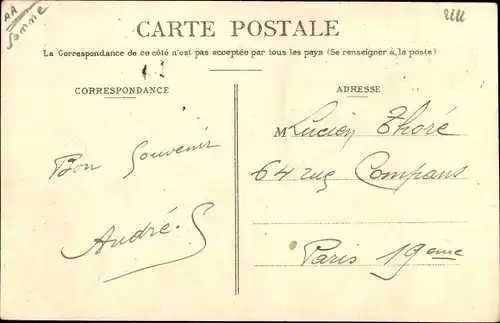 AA
Somme
CARTE POSTALE
La Correspondance de ce côté n'est pas acceptée par tous les pays (Se renseigner à la poste)
CORRESPONDANCE
Bon Souvenir
André. S
ADRESSE
M Lucien Thoré
64 rue Compans
Paris 19eme